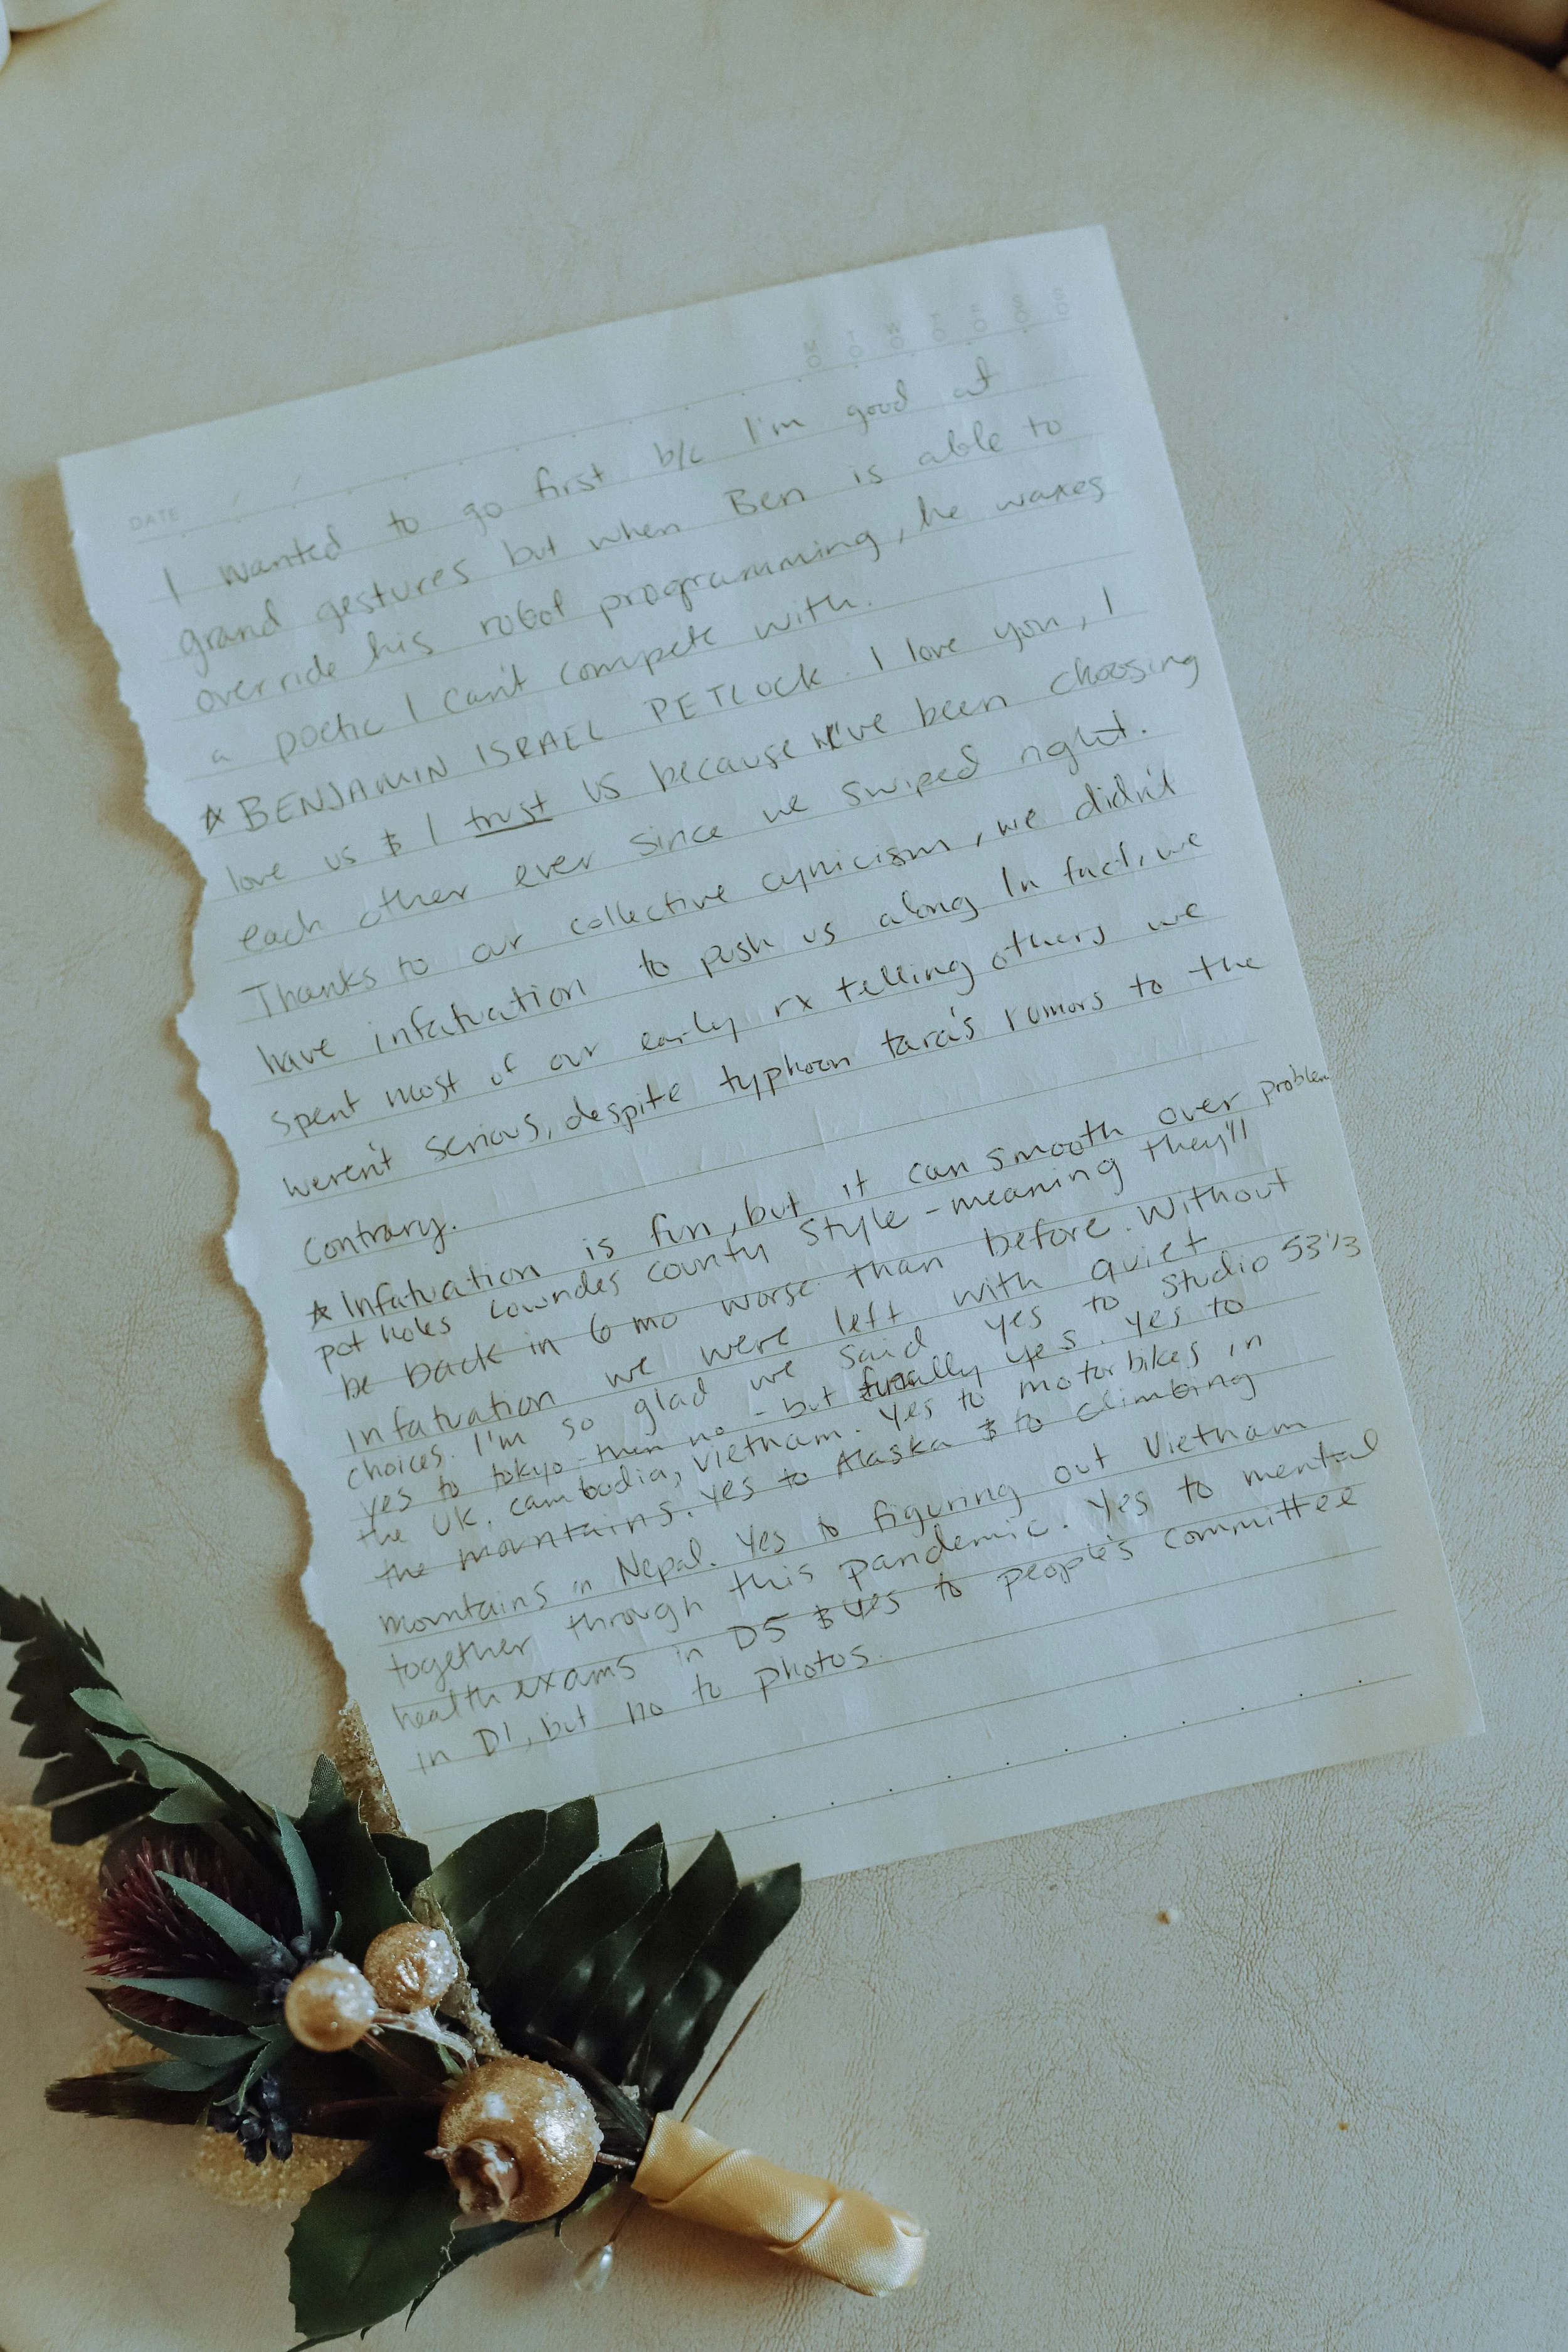 M T W T F S S
DATE / /
I wanted to go first b/c I'm good at
grand gestures but when Ben is able to
override his robot programming, he waxes
a poetic I can't compete with.
☆ BENJAMIN ISRAEL PETLOCK. I love you, I
love us & I trust us because we've been choosing
each other ever since we swiped right.
Thanks to our collective cynicism, we didn't
have infatuation to push us along. In fact, we
spent most of our early rx telling others we
weren't serious, despite typhoon tara's rumors to the
contrary.
☆ Infatuation is fun, but it can smooth over problem
pot holes Lowndes county style - meaning they'll
be back in 6 mo worse than before. Without
infatuation we were left with quiet
choices. I'm so glad we said yes to Studio 53 1/3
yes to tokyo - then no - but finally yes. Yes to
the UK, cambodia, Vietnam. Yes to motorbikes in
the mountains. Yes to Alaska & to climbing
mountains in Nepal. Yes to figuring out Vietnam
together through this pandemic. Yes to mental
health exams in D5 & yes to people's committee
in D1, but no to photos.